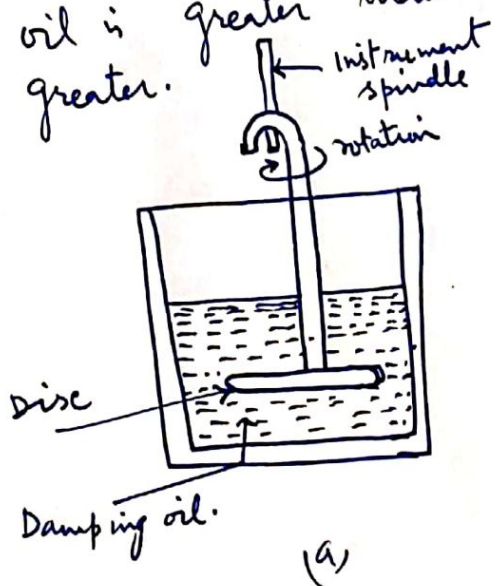 oil is greater
greater.
Instrument
spindle
rotation
Disc
Damping oil.
(a)